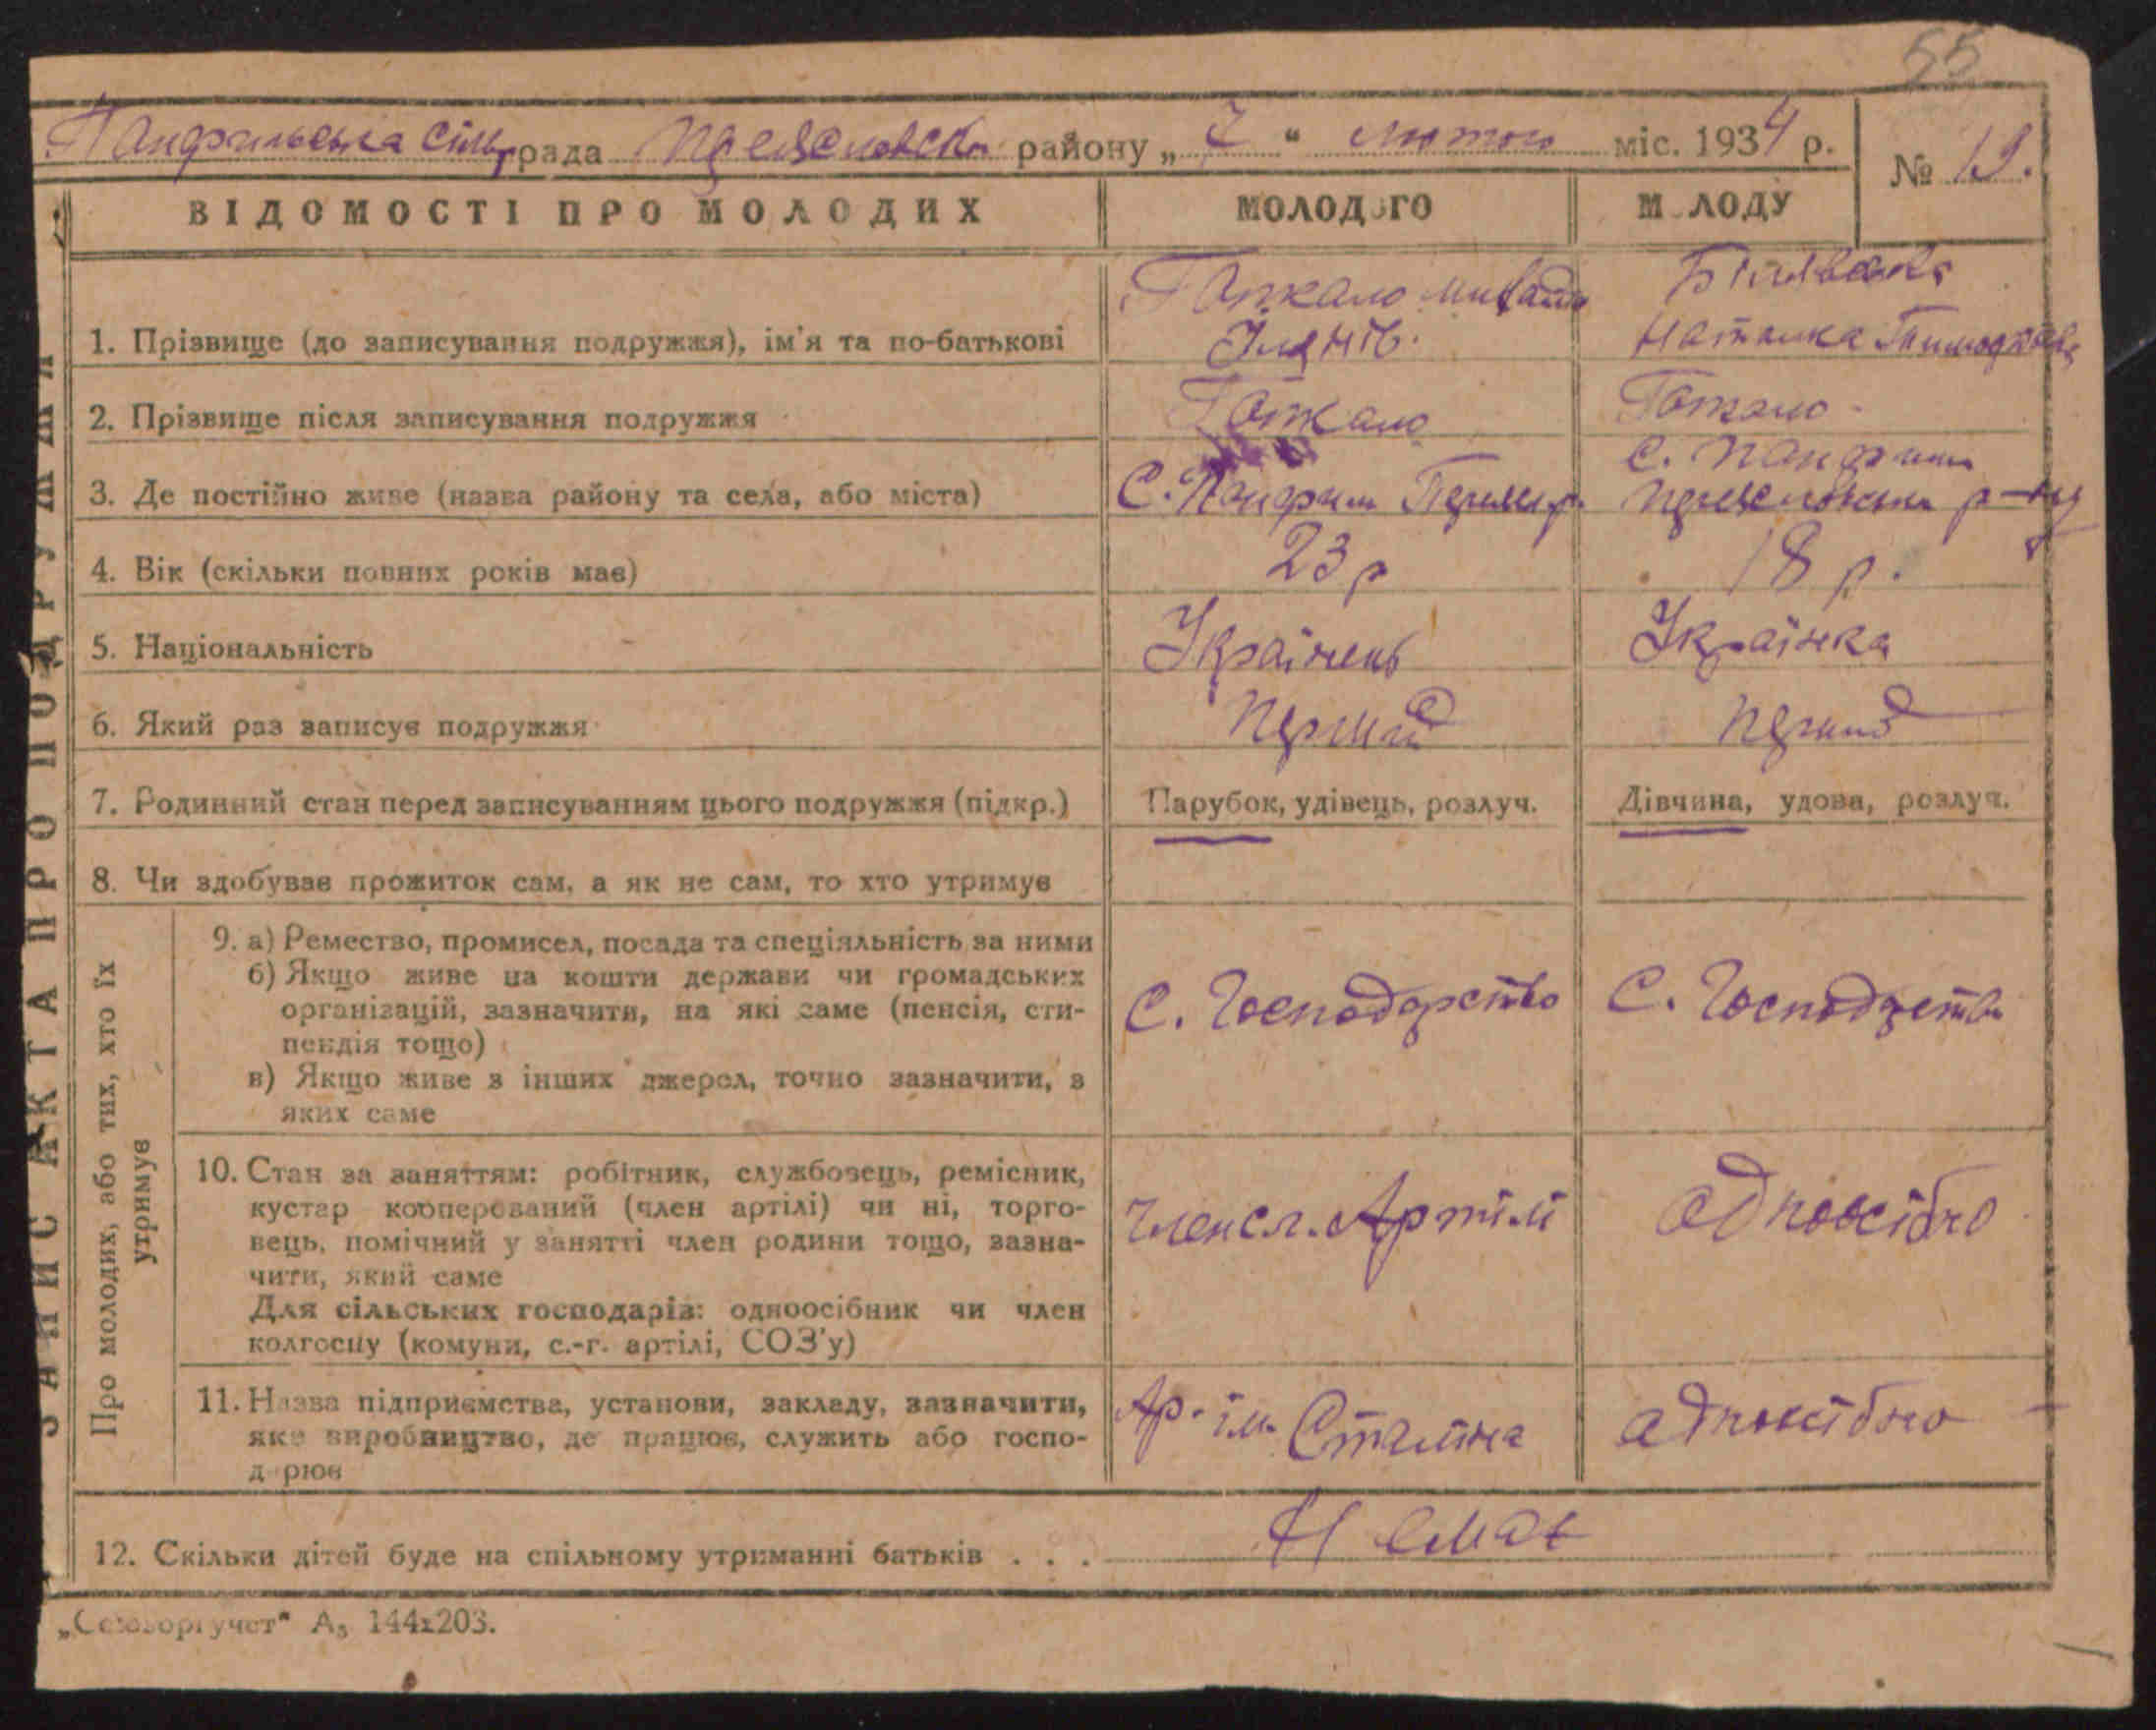 55
Панфильська сільрада району „7“ лютого міс. 1934 р.
№ 19.
ВІДОМОСТІ ПРО МОЛОДИХ
МОЛОДОГО
МОЛОДУ
ЗАПИС АКТА ПРО ПОДРУЖЖЯ
1. Прізвище (до записування подружжя), ім'я та по-батькові
2. Прізвище після записування подружжя
3. Де постійно живе (назва району та села, або міста)
С. Панфили
С. Панфили
р-ну
4. Вік (скільки повних років має)
23 р
18 р.
5. Національність
Українець
Українка
6. Який раз записує подружжя
Перший
Перший
7. Родинний стан перед записуванням цього подружжя (підкр.)
Парубок, удівець, розлуч.
Дівчина, удова, розлуч.
8. Чи здобував прожиток сам, а як не сам, то хто утримує
Про молодих, або тих, хто їх
утримує
9. а) Ремество, промисел, посада та спеціяльність за ними
б) Якщо живе на кошти держави чи громадських
організацій, зазначити, на які саме (пенсія, сти-
пендія тощо)
в) Якщо живе з інших джерел, точно зазначити, з
яких саме
С. Господарство
С. Господарство
10. Стан за заняттям: робітник, службовець, ремісник,
кустар кооперований (член артілі) чи ні, торго-
вець, помічний у занятті член родини тощо, зазна-
чити, який саме
Для сільських господарів: одноосібник чи член
колгоспу (комуни, с.-г. артілі, СОЗ'у)
Член сг. Артілі
одноосібно
11. Назва підприємства, установи, закладу, зазначити,
яке виробництво, де працює, служить або госпо-
дарює
Ар. ім. Сталіна
одноосібно
12. Скільки дітей буде на спільному утриманні батьків . . .
Немає
„Союзоргучет“ А₅ 144x203.